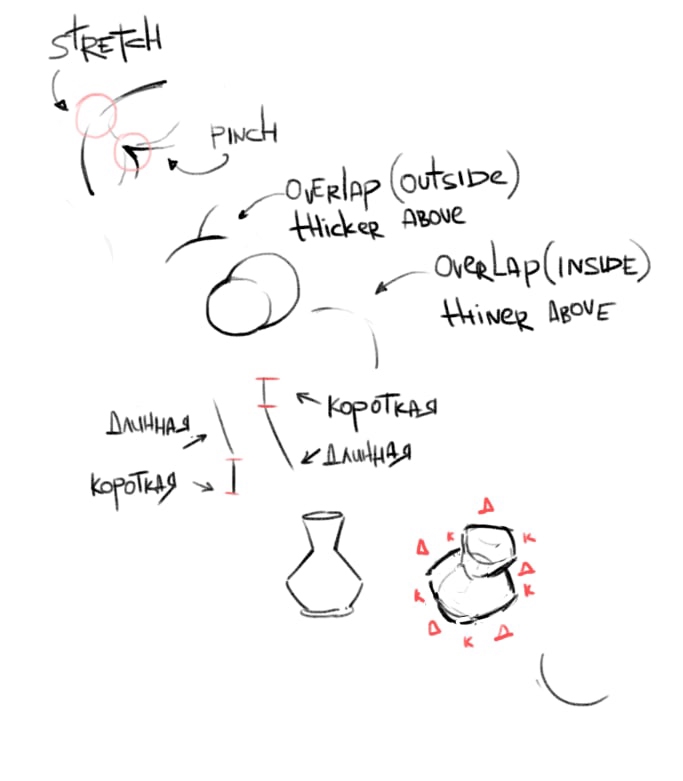 STRETCH
PINCH
OVERLAP (OUTSIDE)
THICKER ABOVE
OVERLAP (INSIDE)
THINER ABOVE
КОРОТКАЯ
ДЛИННАЯ
ДЛИННАЯ
КОРОТКАЯ
Д
К
К
Д
Д
К
К
Д
Д
К